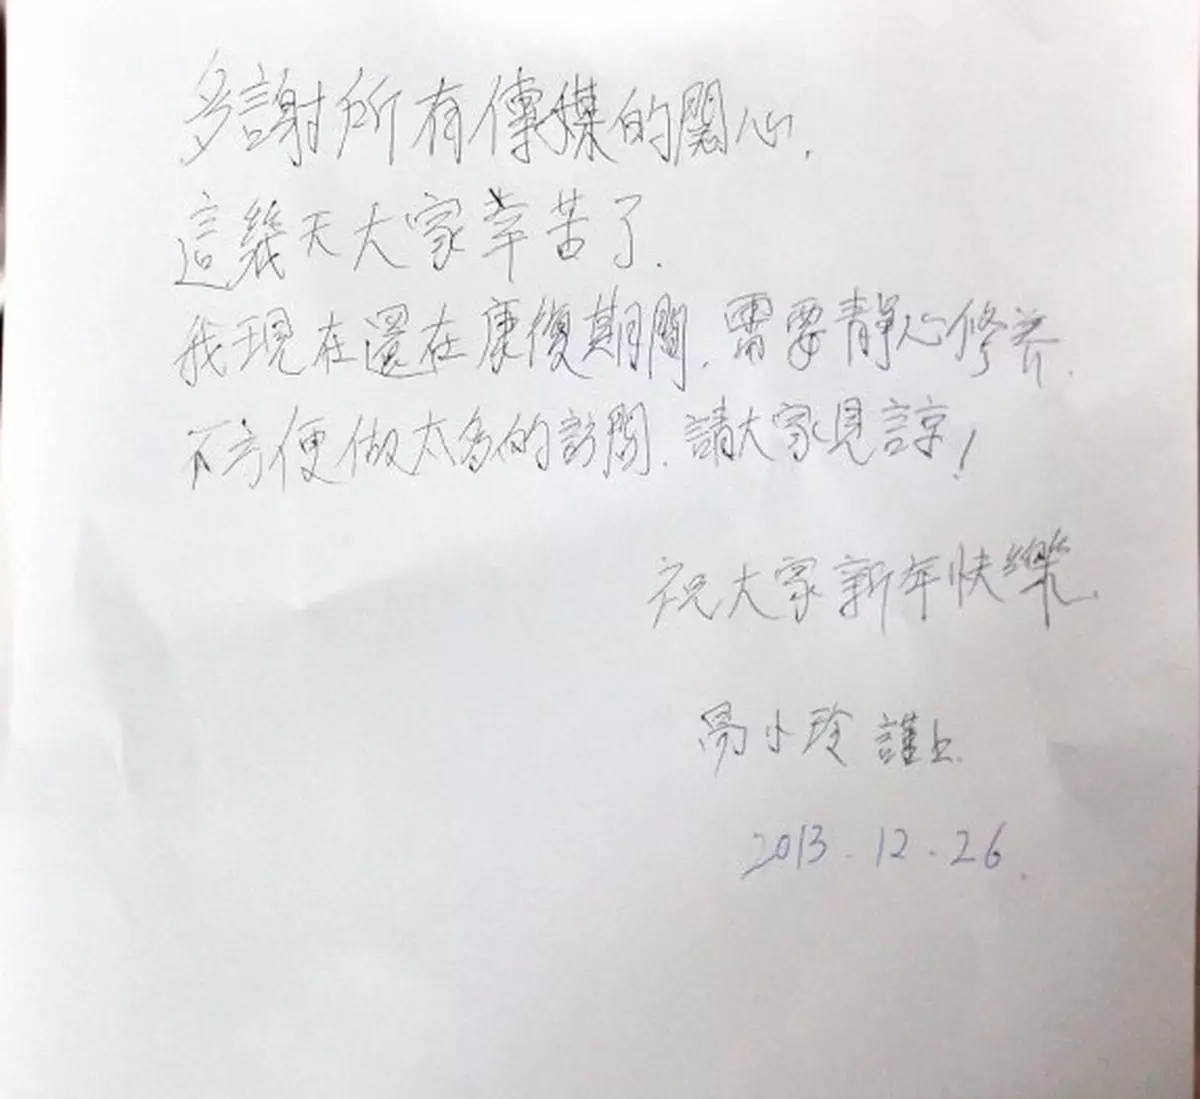 多謝所有傳媒的關心.
這幾天大家辛苦了.
我現在還在康復期間.需要靜心修养.
不方便做太多的訪問.請大家見諒!
祝大家新年快樂.
易小玲 謹上.
2013.12.26.